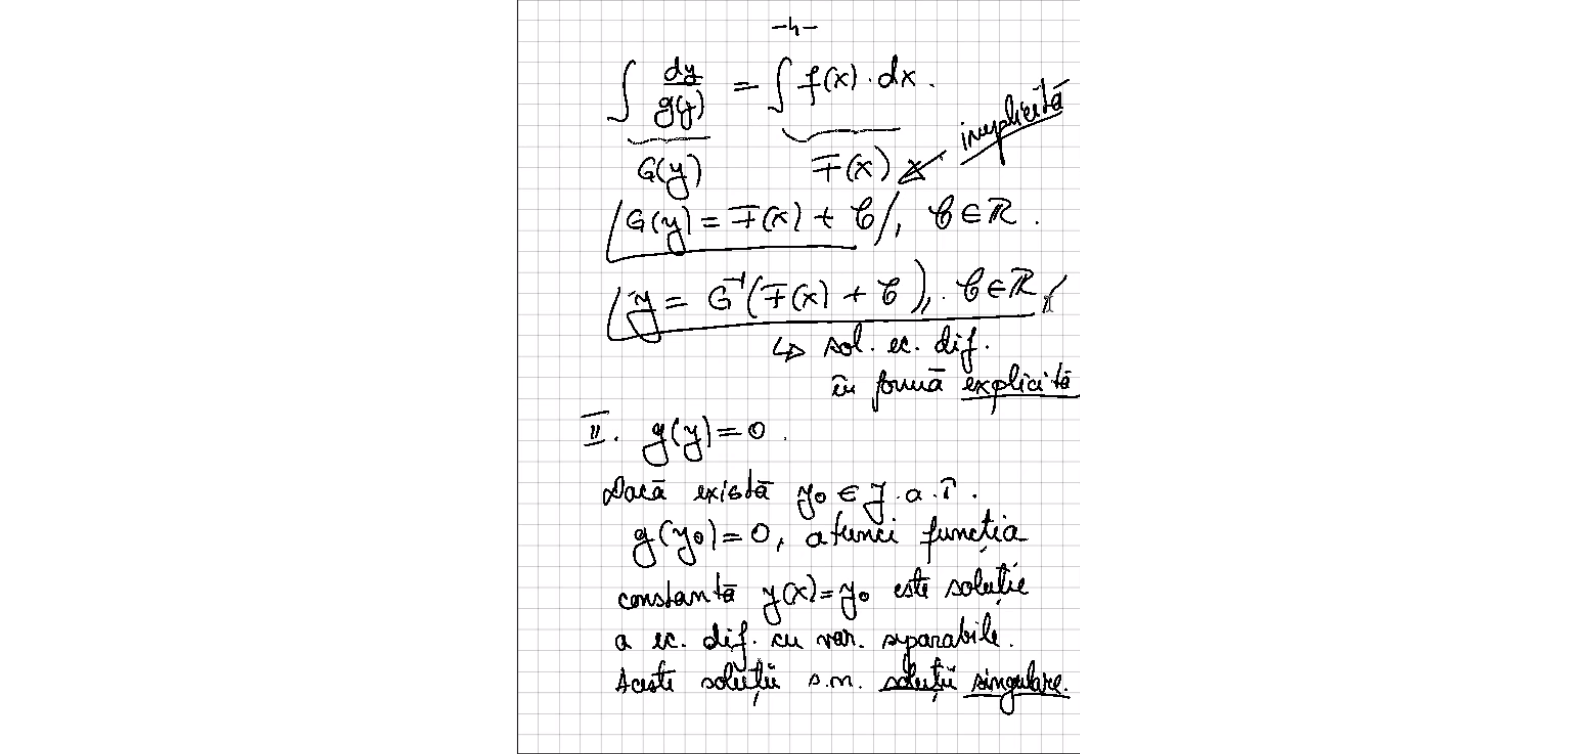 -4-
∫ dy/g(y) = ∫ f(x) · dx.
G(y) F(x) implicită
G(y) = F(x) + C, C ∈ ℝ.
y = G⁻¹(F(x) + C), C ∈ ℝ
↳ sol. ec. dif.
în formă explicită
II. g(y) = 0.
Dacă există y₀ ∈ J. a. î.
g(y₀) = 0, atunci funcția
constantă y(x) = y₀ este soluție
a ec. dif. cu var. separabile.
Aceste soluții s.n. soluții singulare.